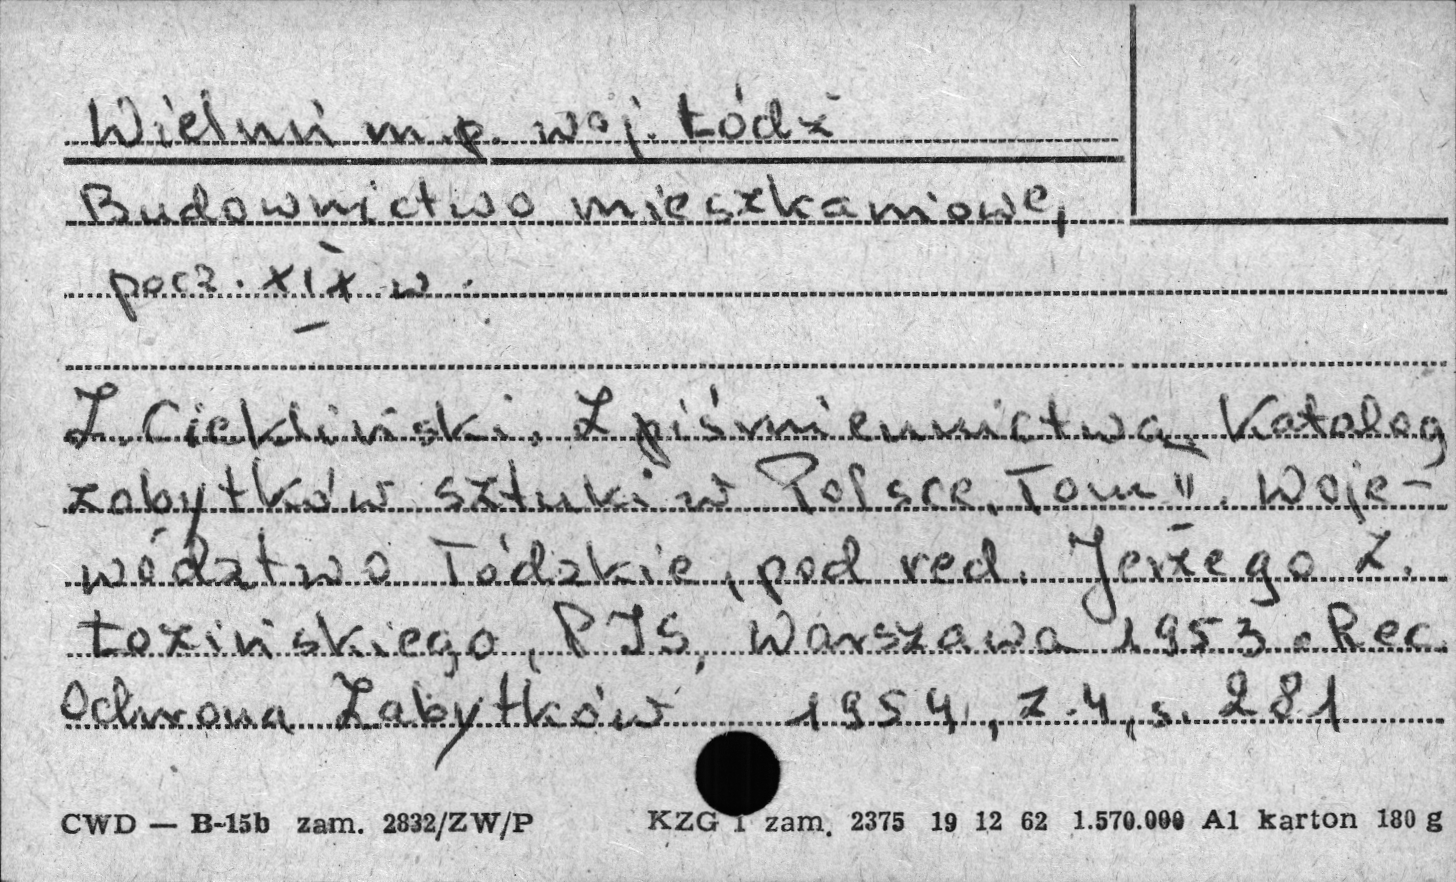 Wieluń m.p. woj. Łódź
Budownictwo mieszkaniowe,
pocz. XIX w.
Z. Ciekliński. Z piśmiennictwa. Katalog
zabytków sztuki w Polsce. Tom II. Woje-
wództwo Łódzkie, pod red. Jerzego Z.
Łozińskiego, PIS, Warszawa 1953. Rec.
Ochrona Zabytków 1954, z. 4, s. 281
CWD — B-15b zam. 2832/ZW/P KZG 1 zam. 2375 19 12 62 1.570.000 A1 karton 180 g